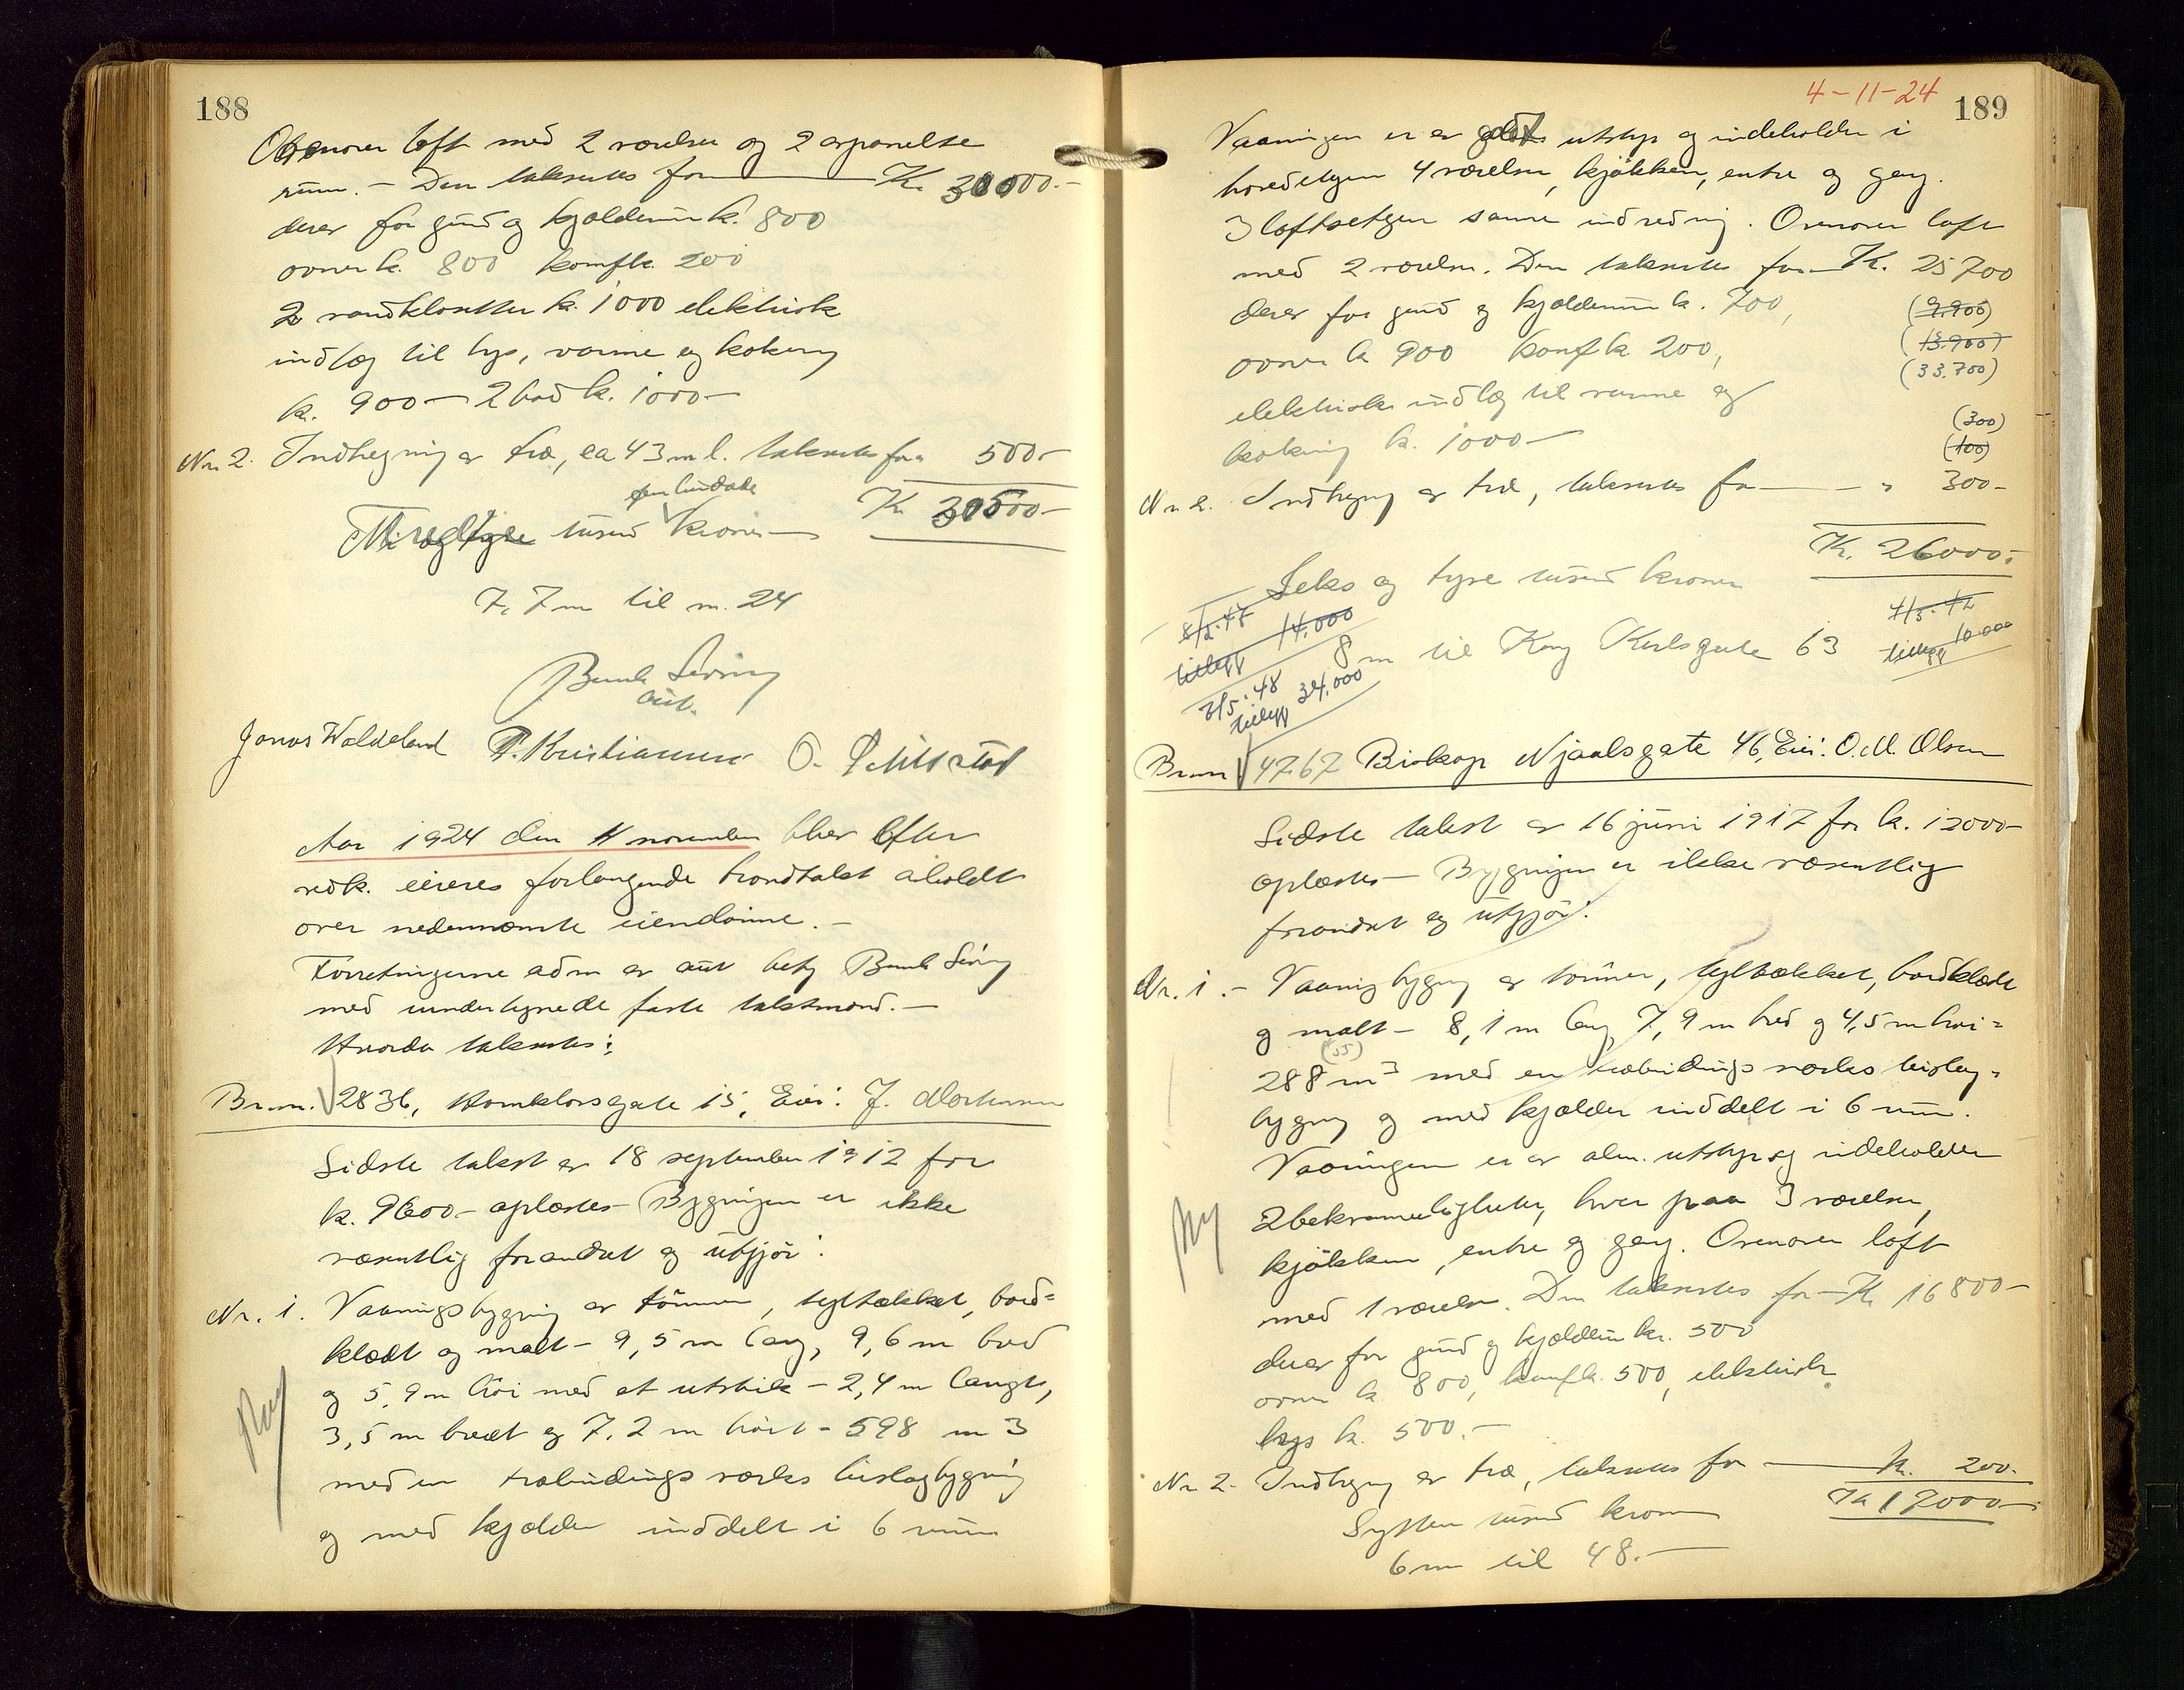 188
Ovenover loft med 2 værelser og 2 avpanelte
rum. – Den takseres for Kr. 30000.-
derav for grund og kjælderum k. 800
ovner k. 800 komf k. 200
2 vandklosetter k. 1000 elektrisk
indlæg til lys, varme og kokning
k. 900 – 2 bad k. 1000 –
Nr. 2. Indhegning av træ, ca 43 m l. takseres for 500 –
fem hundrede
tusend kroner – Kr 30500 –
7,7 m til nr. 24
Bernh Severing
aut.
Jonas Waldeland P. Kristiansen O.
Aar 1924 den 4 november blev efter
vedk. eieres forlangende brandtakst avholdt
over nedennævnte eiendomme. –
Forretningerne adm av aut betj Bernh Severing
med undertegnede faste takstmænd. –
Hvorda takseres:
Br.nr. 2836, Hornklovsgate 15, Eier: J. Mortensen
Sidste takst av 18 september 1912 for
k. 9600 – oplæstes – Bygningen er ikke
væsentlig forandret og utgjør:
Nr. 1. Vaaningsbygning av tømmer, tegltækket, bord-
klædt og malt – 9,5 m lang, 9,6 m bred
og 5,9 m høi med et utstik – 2,4 m langt,
3,5 m bredt og 7,2 m høit – 598 m3
med en træbindingsverks bislagbygning
og med kjælder inddelt i 6 rum
Ny
4-11-24
189
Vaaningen er av godt utstyr og indeholder i
hovedetagen 4 værelser, kjøkken, entre og gang.
I loftsetagen samme indredning. Ovenover loft
med 2 værelser. Den takseres for – Kr. 25700
derav for grund og kjælderum k. 700, (9.900)
ovner k 900 komf k. 200, (13.900)
(33.700)
elektrisk indlæg til varme og
kokning k. 1000 –
(300)
(100)
Nr. 2. Indhegning av træ, takseres for – " 300 –
Kr. 26000.-
Seks og tyve tusend kroner
8/2-48 14.000
tillegg
8 m til Kong Karlsgate 63
4/3-42
tillegg 10.000
3/5-48
tillegg 34.000
Br.nr. 4767 Biskop Njaalsgate 46, Eier: O. M. Olsen
Sidste takst av 16 juni 1917 for k. 12000 –
oplæstes – Bygningen er ikke væsentlig
forandret og utgjør:
Nr. 1. – Vaaningsbygning av tømmer, tegltækket, bordklædt
og malt – 8,1 m lang, 7,9 m bred og 4,5 m høi =
(55)
288 m3 med en træbindingsverks bislag-
bygning og med kjælder inddelt i 6 rum.
Vaaningen er av alm. utstyr og indeholder
2 bekvemmeligheter, hver paa 3 værelser,
kjøkken, entre og gang. Ovenover loft
med 1 værelse. Den takseres for – Kr 16800 –
derav for grund og kjælderum kr. 500
ovner k 800, komf k. 500, elektrisk
lys k. 500. –
Ny
Nr. 2. Indhegning av træ, takseres for – k. 200.
Kr 17000 –
Sytten tusend kroner
6 m til 48. –